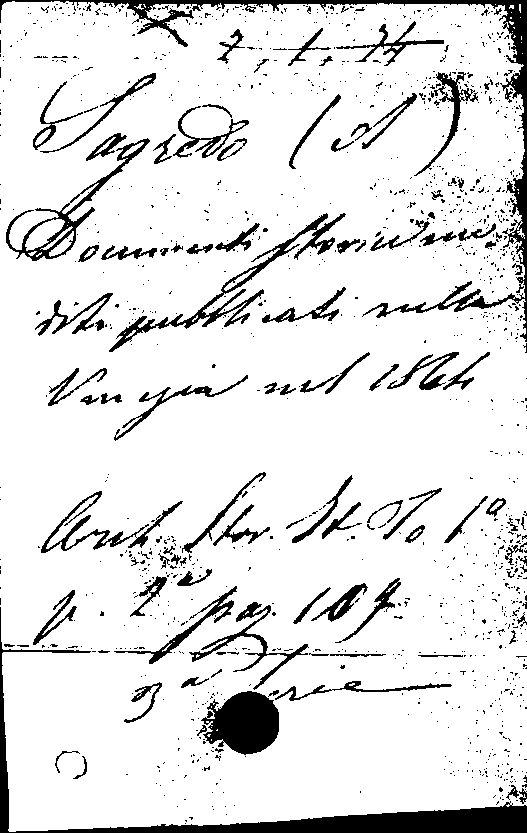 7. 1. 74
Sagredo (A)
Documenti storici ine-
diti pubblicati nella
Venezia nel 1864
Arch. Stor. It. To 1ª
p. 2ª pag. 109
3ª Serie